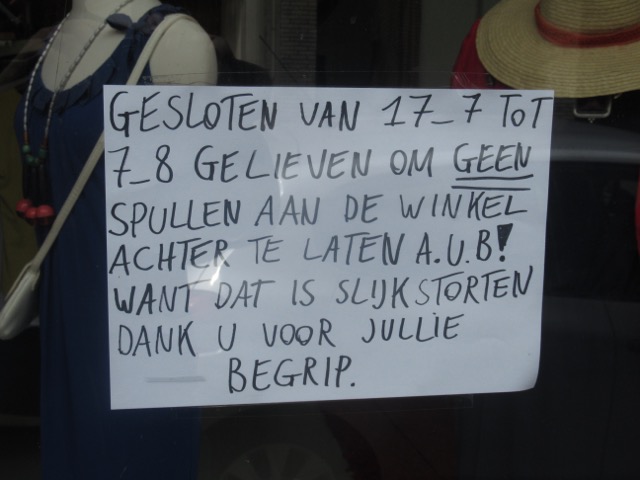 GESLOTEN VAN 17_7 TOT
7_8 GELIEVEN OM GEEN
SPULLEN AAN DE WINKEL
ACHTER TE LATEN A.U.B!
WANT DAT IS SLIJKSTORTEN
DANK U VOOR JULLIE
BEGRIP.